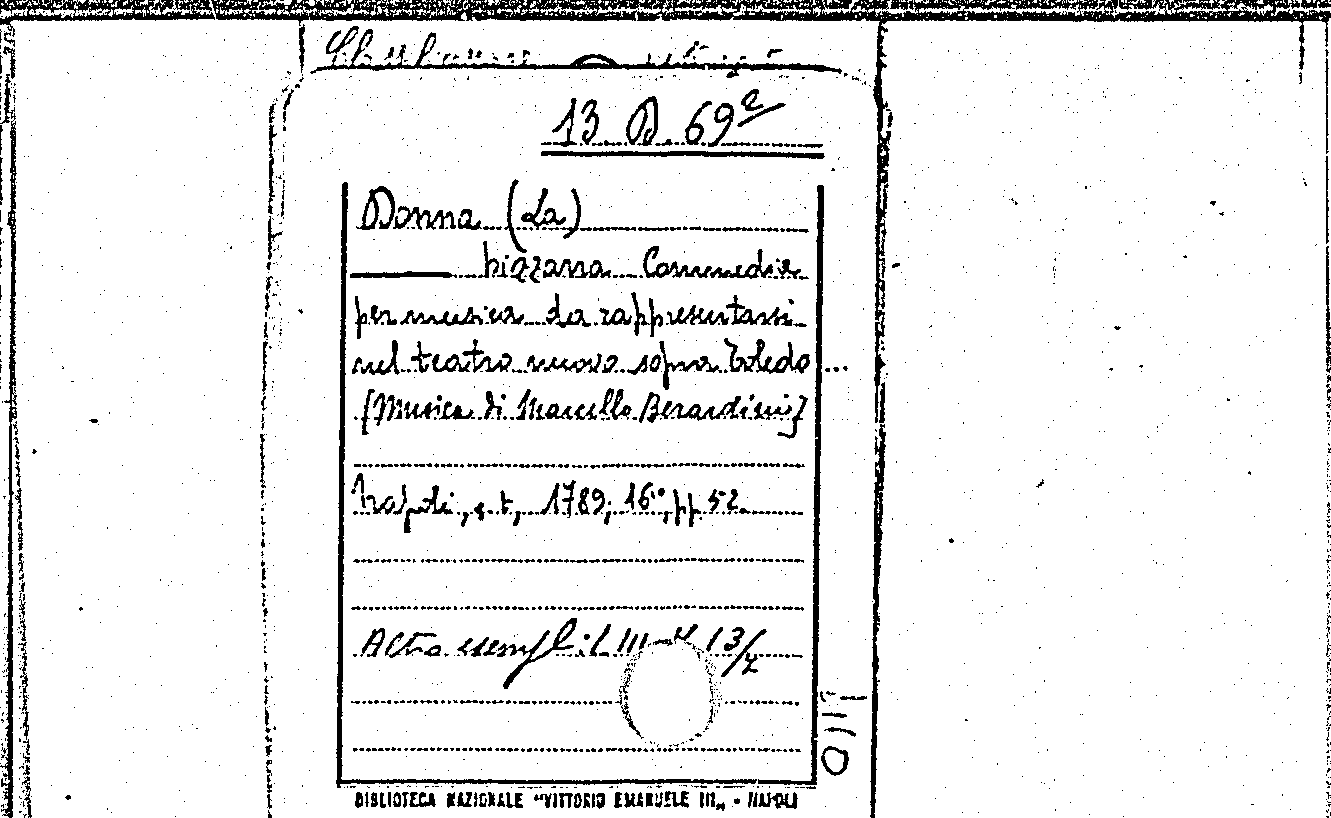 13. D. 69ª
Donna (La)
bizzarra Commedia
per musica da rappresentarsi
nel teatro nuovo sopra Toledo ...
[Musica di Marcello Berardini]
Napoli, s. t., 1789, 16°, pp 52.
Altro esempl.: L III 13/7
BIBLIOTECA NAZIONALE "VITTORIO EMANUELE III„ - NAPOLI